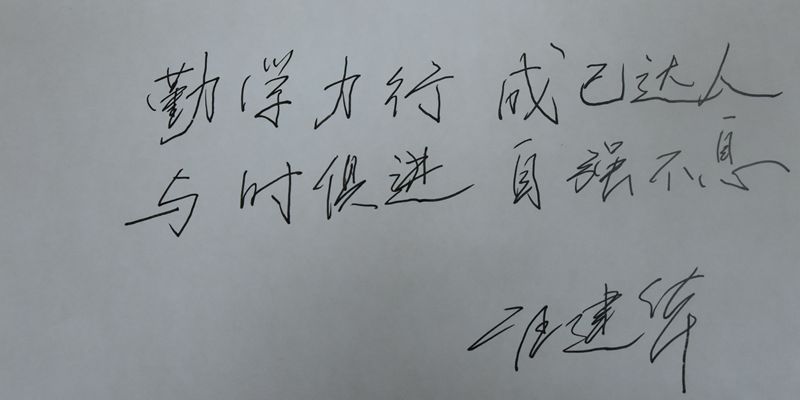 勤学力行 成己达人
与时俱进 自强不息
汪建华